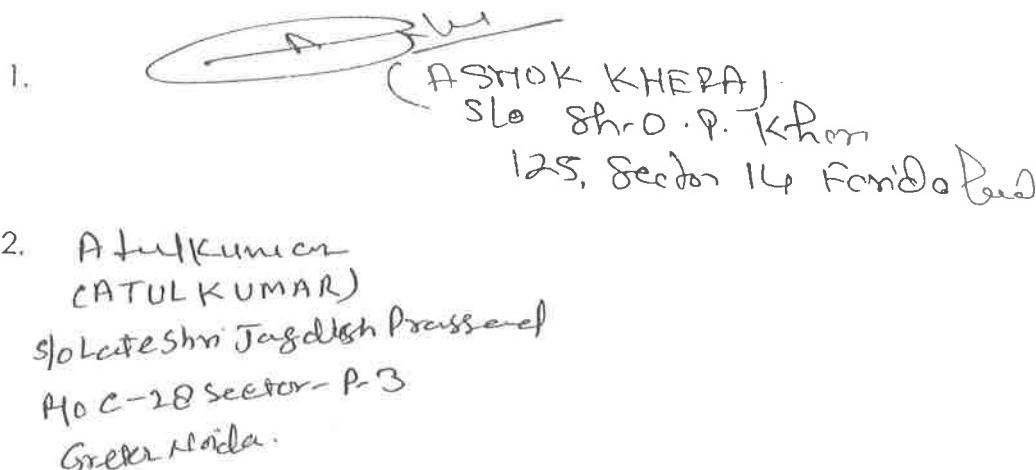 1.
(ASHOK KHERA)
S/o Sh. O. P. Khera
125, Sector 14 Faridabad
2. Atul Kumar
(ATUL KUMAR)
S/o Late Shri Jagdish Prassad
R/o C-28 Sector-P-3
Greter Noida.